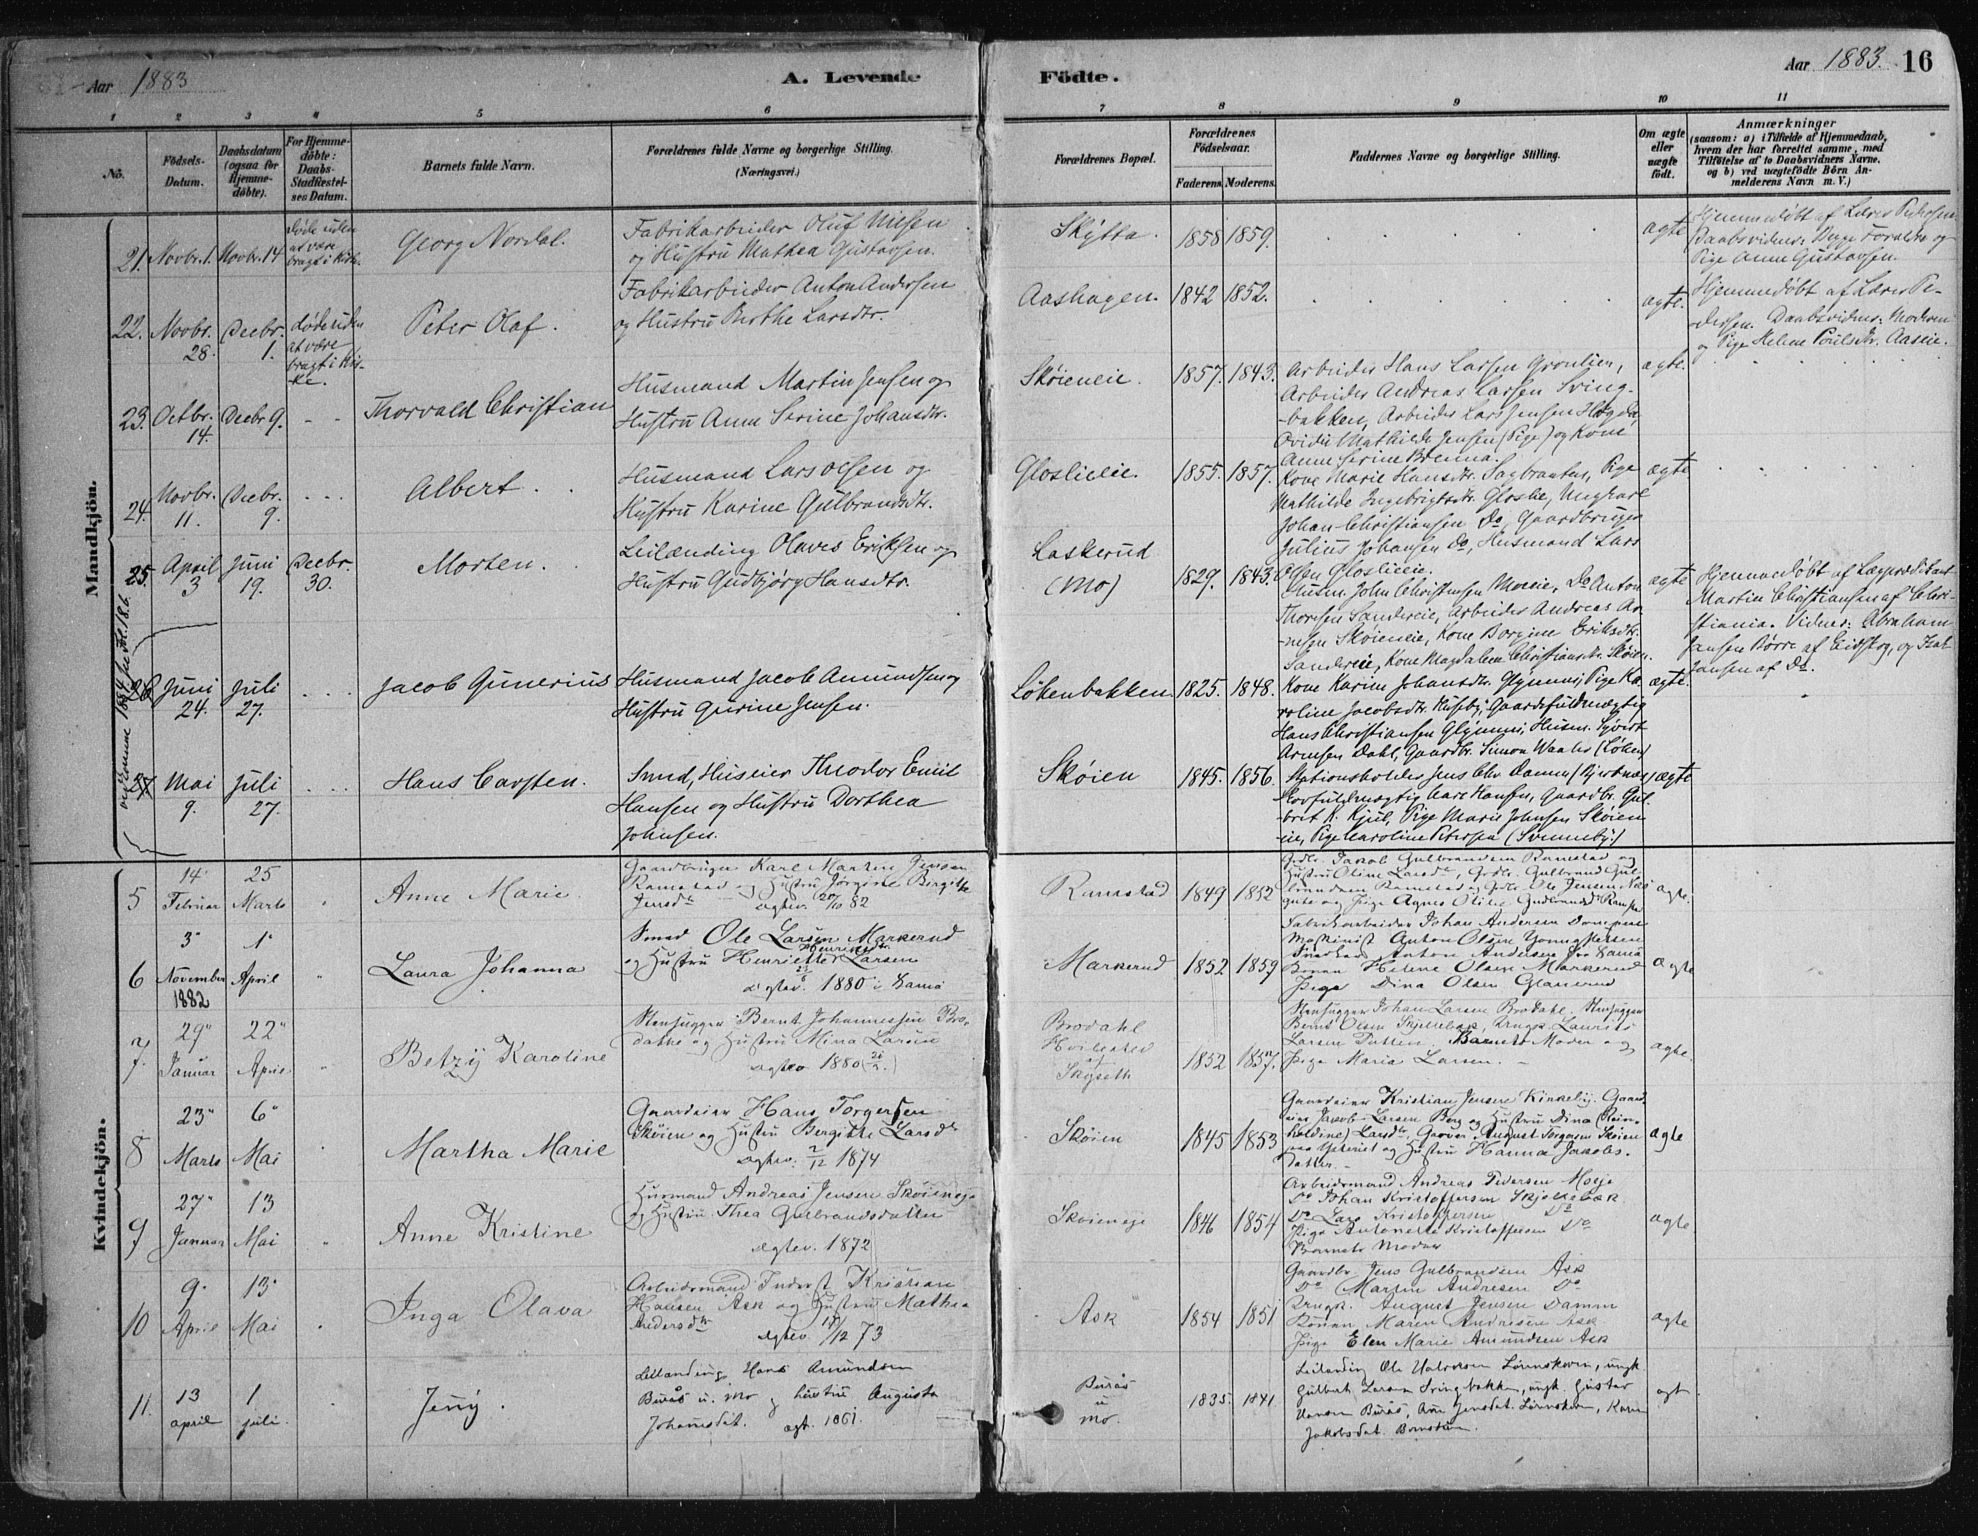 Aar 1883
A. Levende
Födte.
Aar 1883. 16
1 2 3 4 5 6 7 8 9 10 11
No.
Födsels-
Datum.
Daabsdatum
(ogsaa for
Hjemme-
döbte).
For Hjemme-
döbte:
Daabs-
Stadfæstel-
ses Datum.
Barnets fulde Navn.
Forældrenes fulde Navne og borgerlige Stilling.
(Næringsvei.)
Forældrenes Bopæl.
Forældrenes
Födselsaar.
Faderens. Moderens.
Faddernes Navne og borgerlige Stilling.
Om ægte
eller
uægte
födt.
Anmærkninger
(saasom: a) i Tilfælde af Hjemmedaab,
hvem der har forrettet samme, med
Tilföielse af to Daabsvidners Navne.
og b) ved uægtefödte Börn An-
melderens Navn m. V.)
Mandkjön.
21. Novbr. 1. Novbr. 14
døde uden
at være
bragt i Kirke.
Georg Nordal.
Fabrikarbeider Oluf Nilsen
og Hustru Mathea Gustavsen.
Skÿtta. 1858 1859. ægte
Hjemmedøbt af Lærer Pedersen.
Daabsvidner: Begge Forældre og
Pige Anne Gustavsen.
22. Novbr. 28. Decbr. 1.
døde uden
at være
bragt i Kir-
ke.
Peter Olaf.
Fabrikarbeider Anton Andersen
og Hustru Berthe Larsdtr.
Aashagen. 1842 1852. ægte.
Hjemmedøbt af Lærer Pe-
dersen. Daabsvidner: Moderen
og Pige Helene Poulsdtr. Aaseie.
23. Octbr. 14. Decbr 9.
Thorvald Christian
Husmand Martin Jensen og
Hustru Anne Serine Johansdtr.
Skøieneie. 1857. 1843.
Arbeider Hans Larsen Grønlien,
Arbeider Andreas Larsen Sving-
bakken, Arbeider Lars Jensen
Mathilde Jensen (Pige) og Kone
Anne Serine Brenna.
ægte.
24. Novbr. 11. Decbr. 9.
Albert.
Husmand Lars Olsen og
Hustru Karine Gulbrandsdtr.
Gloslieie. 1855. 1857.
Kone Marie Hansdtr. Sagbraaten, Pige
Mathilde Ingebrigtsdtr. Gloslie, Ungkarl
Johan Christiansen Do, Gaardbruger
Julius Johansen Do, Husmand Lars
Olsen Gloslieie.
ægte
25. April 3 Juni 19. Decbr. 30.
Morten.
Leilænding Olaves Eriksen og
Hustru Gudbjørg Hansdtr.
Laskerud
(Mo)
1829. 1843.
Husm. John Christensen Moeie, Do Anton
Thoresen Sandereie, Arbeider Andreas Ar-
nesen Skøieneie, Kone Borgine Eriksdtr.
Sandereie, Kone Magdalene Christiansdtr. Skøien.
ægte
Hjemmedøbt af Lægprædikant
Martin Christiansen af Chri-
stiania. Vidner: Abraham
Jansen Børre af Eidskog, og Isak
Jansen af Do.
26 Juni 24. Juli 27.
Jacob Gunerius
Husmand Jacob Amundsen og
Hustru Gurine Jensen.
Løkenbakken. 1825. 1848.
Kone Karine Johansdtr. Glÿmmi, Pige Ka-
roline Jacobsdtr. Husebÿ, Gaardsfuldmægtig
Hans Christiansen Glÿmmi, Husm. Syvert
Arnesen Dahl, Gaardbr. Simon Waaler (Løken)
ægte.
27 Mai 9. Juli 27.
Hans Carsten.
Smed, Huseier Theodor Emil
Hansen og Hustru Dorthea
Johnsen.
Skøien 1845. 1856.
Stationsholder Jens Chr. Damm (Bjerknæs),
Skovfuldmægtig Carl Hansen, Gaardbr. Gul-
brit K. Kjul, Pige Marie Johnsen Skøien-
eie, Pige Karoline Petersen (Svennebÿ.)
ægte
Kvindekjön.
5 14" Februar 25 Marts
Anne Marie
Gaardbruger Karl Martin Jensen
Ramstad og Hustru Jørgine Bergitte
Jensdtr ægtev. 82
Ramstad 1849 1852
Grdbr. Jakob Gulbrandsen Ramstad og
Hustru Oline Larsdtr, Grdbr. Gulbrand Gul-
brandsen Ramstad og Grdbr. Ole Jensen
og Pige Agnes Otilie Gudbrandsd. Ramstad
ægte.
6 3" November 1882 1" April
Laura Johanna
Smed Ole Larsen Markerud
og Hustru Henriette Larsen
ægtev. 1880 i
Markerud 1852 1859
Fabrikarbeider Johan Andersen
Maskinist Anton Olsen
Anton Andersen
Konen Helene Olsen Markerud
Pige Dina Olsen Glanerud
ægte
7. 29" Januar 22" April
Betzÿ Karoline
Stenhugger Bernt Johannessen Bro-
dahl og Hustru Mina Larsen
ægtev 1880
Brodahl
af
Skÿseth
1852 1857.
Stenhugger Johan Larsen Brodahl, Stenhugger
Bernt Olsen Skjellebæk, Ungk. Laurits
Larsen Barnets Moder og
Pige Maria Larsen.
ægte.
8 23" Marts 6" Mai
Martha Marie
Gaardeier Hans Torgersen
Skøien og Hustru Bergitte Larsdtr
ægtev: 2/12 1874
Skøien 1845 1853
Gaardeier Kristian Jensen Kirkebÿ. Gaard-
eier Jacob Larsen Berg og Hustru Dina (Rein-
holdine) Larsdtr. August Torgersen Skøien
og Hustru Hanna Jakobs-
datter.
ægte
9 27" Januar 13 Mai
Anne Kristine
Husmand Andreas Jensen Skøieneje
og Hustru Thea Gulbrandsdatter
ægtev. 1872
Skøieneje 1846 1854
Arbeidsmand Andreas Pedersen Moeje
Do Johan Kristoffersen Skjellebæk.
Do Lars Kristoffersen Do
Pige Antonette Kristoffersen Do
Barnets Moder
ægte
10 9" April 13" Mai
Inga Olava
Arbeidsmand Inderst Kristian
Hansen Ask og Hustru Mathea
Andersdtr ægtev. /12 73
Ask 1854 1851
Gaardbr Jens Gulbrandsen Ask
Do Martin Andresen Do
Ungk. August Jensen Damm
Konen Maren Andresen Ask
Pige Elen Marie Amundsen Ask
ægte
11. 13 april 1 juli.
Jenÿ.
Leilænding Hans Amundsen
Buraas u. Mo og hustru Augusta
Johannesdat. ægt. 1861.
Buraas
u
Mo.
1835. 1841.
Leilænding Ole Lønnskoven, ungk
Gulbrit Larsen Svingbakken, ungk. Gustav
Hansen Buraas, Ane Jensdat. Lønnskoven, Karen
Jakobsdat.
ægt